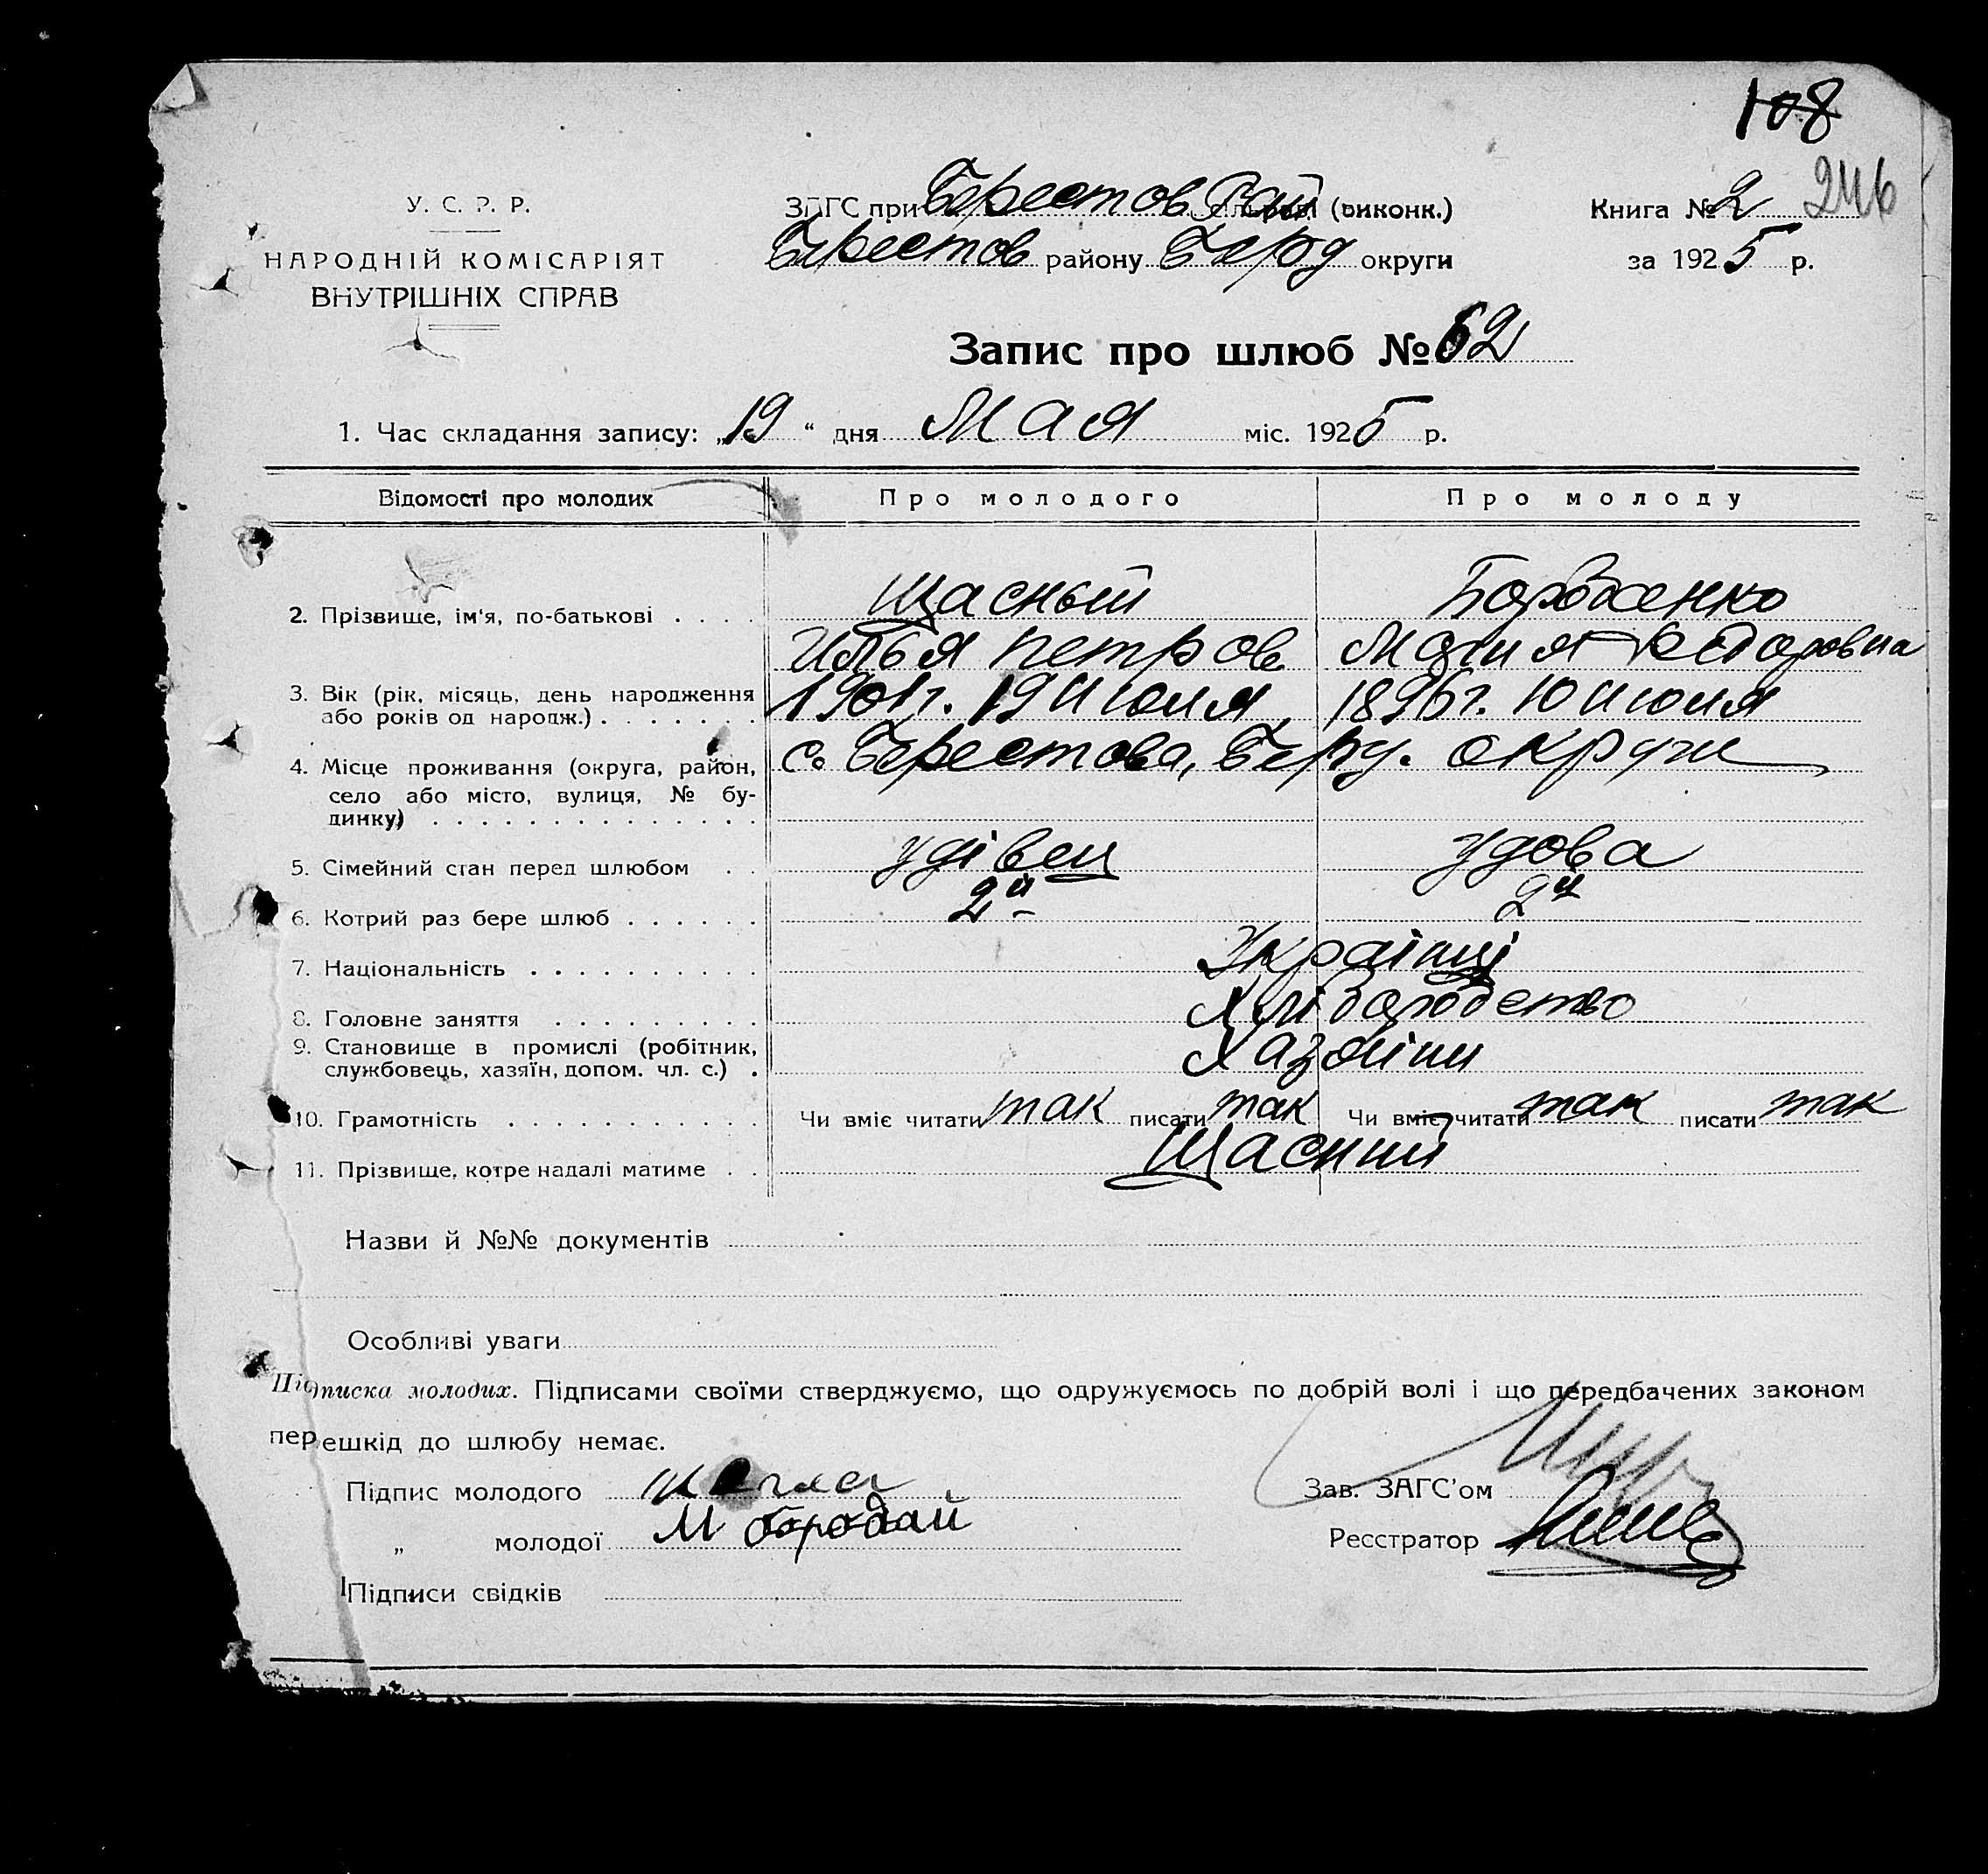 108
246
У. С. Р. Р.
НАРОДНІЙ КОМІСАРІЯТ
ВНУТРІШНІХ СПРАВ
ЗАГС при Берестов Рай (виконк.)
Берестов району Берд округи
Книга № 2
за 1925 р.
Запис про шлюб № 62
1. Час складання запису: „19“ дня Мая міс. 1925 р.
Відомості про молодих Про молодого Про молоду
2. Прізвище, ім'я, по-батькові . . . . Щасный
Илья Петров Мария Федоровна
3. Вік (рік, місяць, день народження 1901г. 19 Июля 1896г. 10 Июля
або років од народж.) . . . . . . .
4. Місце проживання (округа, район, с. Берестова, Берд. округи
село або місто, вулиця, № бу-
динку) . . . . . . . . . . . . . .
5. Сімейний стан перед шлюбом . . удівец удова
6. Котрий раз бере шлюб . . . . . . 2й 2й
7. Національність . . . . . . . . . . Українці
8. Головне заняття . . . . . . . . . Хліборобство
9. Становище в промислі (робітник, Хазяіни
службовець, хазяїн, допом. чл. с.) .
10. Грамотність . . . . . . . . . . . Чи вміє читати так писати так Чи вміє читати так писати так
11. Прізвище, котре надалі матиме . . Щасний
Назви й №№ документів
Особливі уваги
Підписка молодих. Підписами своїми стверджуємо, що одружуємось по добрій волі і що передбачених законом
перешкід до шлюбу немає.
Підпис молодого
„ молодої М бородай
Підписи свідків
Зав. ЗАГС'ом
Реєстратор